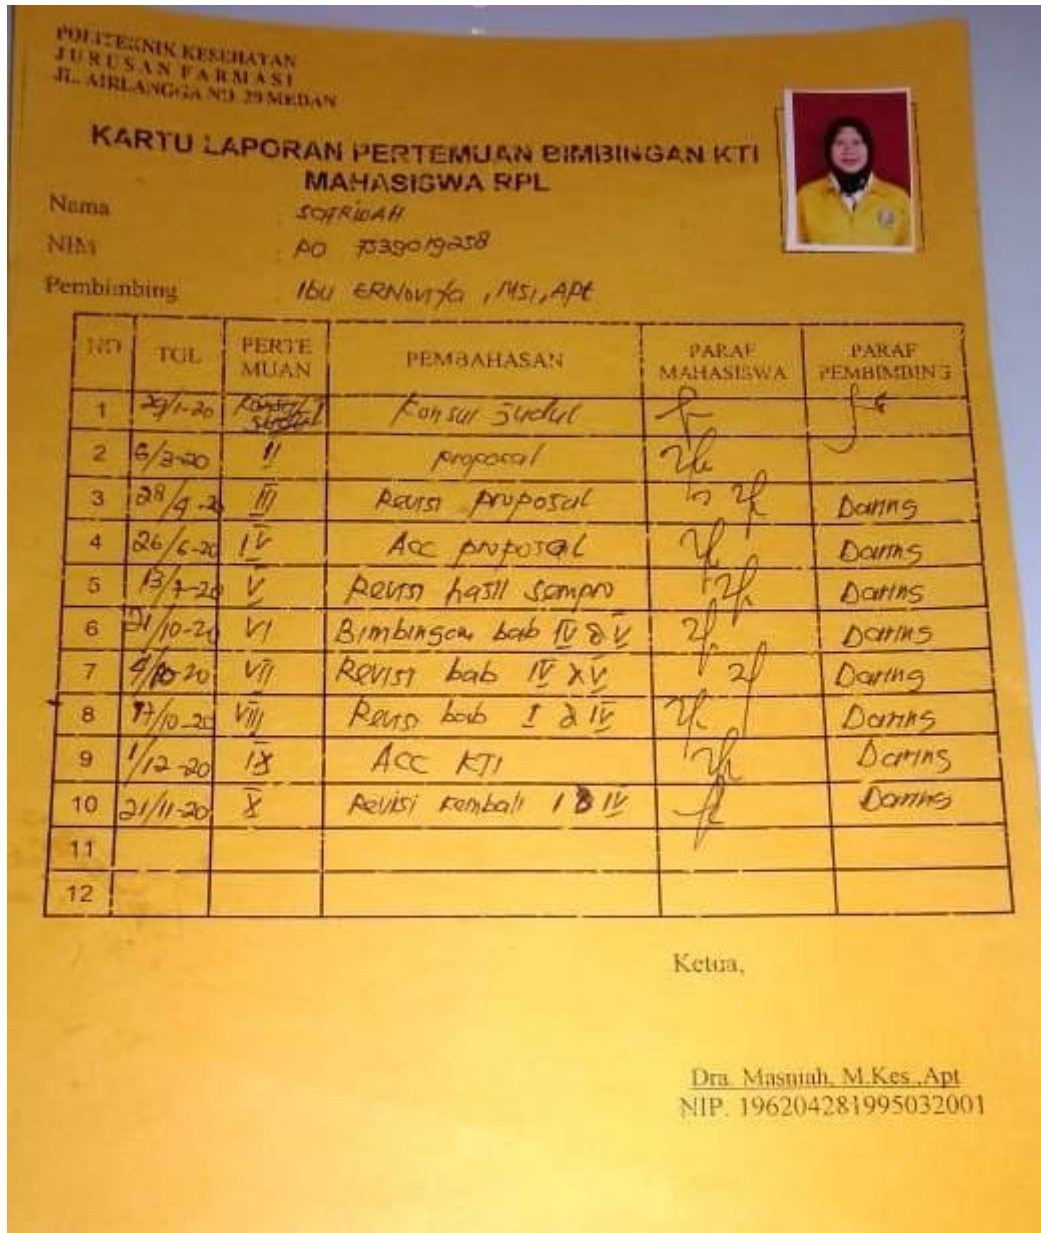 POLITEKNIK KESEHATAN
JURUSAN FARMASI
JL. AIRLANGGA NO. 29 MEDAN
KARTU LAPORAN PERTEMUAN BIMBINGAN KTI
MAHASISWA RPL
Nama : SOFRIDAH
NIM : PO 7539019258
Pembimbing : Ibu ERNovita, MSI, Apt
NO TGL PERTE MUAN PEMBAHASAN PARAF MAHASISWA PARAF PEMBIMBING
1 29/1-20 I Konsul Judul
2 6/3-20 II proposal
3 28/4-2 III Revisi proposal Daring
4 26/6-20 IV Acc proposal Daring
5 13/7-20 V Revisi hasil sempro Daring
6 21/10-20 VI Bimbingan bab IV & V Daring
7 VII Revisi bab IV & V Daring
8 17/10-20 VIII Revisi bab I & IV Daring
9 1/12-20 IX Acc KTI Daring
10 21/11-20 X Revisi kembali I & IV Daring
11
12
Ketua,
Dra. Masniah, M.Kes.,Apt
NIP. 196204281995032001